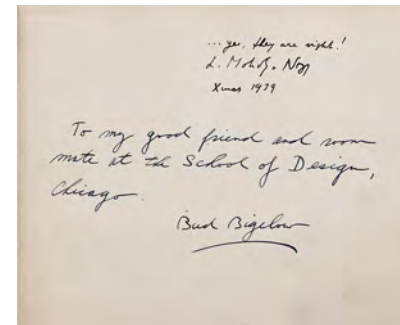 ... yes, they are right!
L. Moholy-Nagy
Xmas 1939
To my good friend and room
mate at the School of Design,
Chicago.
Bud Bigelow